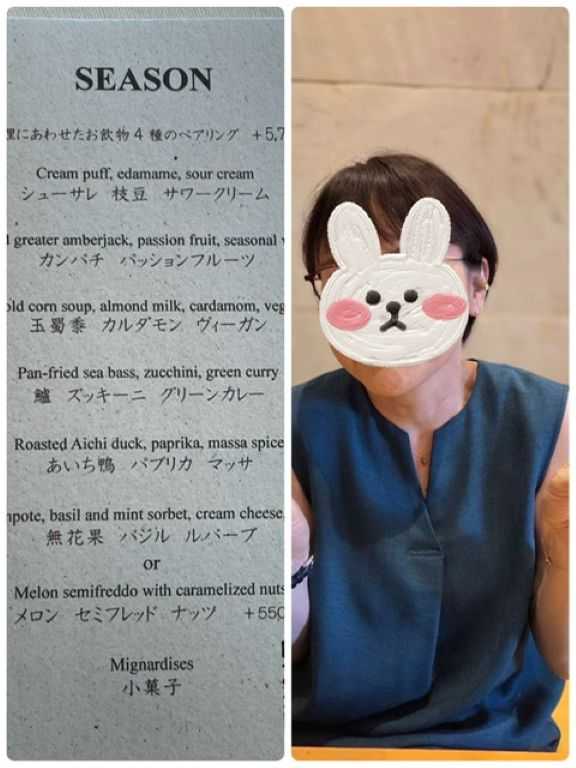 SEASON
にあわせたお飲物 4 種のペアリング +5,7
Cream puff, edamame, sour cream
シューサレ 枝豆 サワークリーム
greater amberjack, passion fruit, seasonal
カンパチ パッションフルーツ
old corn soup, almond milk, cardamom, veg
玉蜀黍 カルダモン ヴィーガン
Pan-fried sea bass, zucchini, green curry
鱸 ズッキーニ グリーンカレー
Roasted Aichi duck, paprika, massa spice
あいち鴨 パプリカ マッサ
mpote, basil and mint sorbet, cream cheese,
無花果 バジル ルバーブ
or
Melon semifreddo with caramelized nuts
メロン セミフレッド ナッツ +550
Mignardises
小菓子